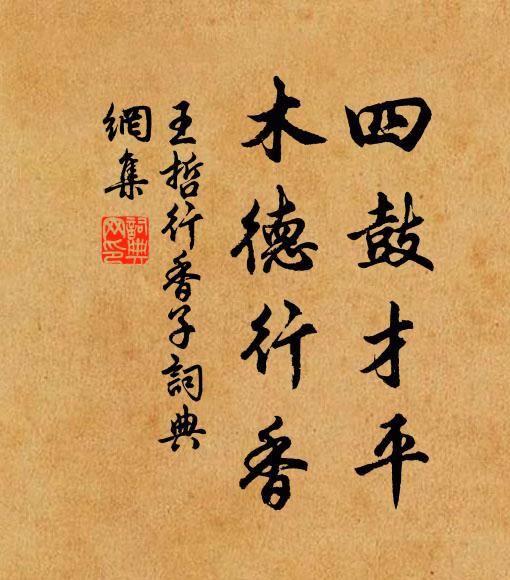 四鼓才平
木德行香
王哲行香子詞典
網集
詞典
网印